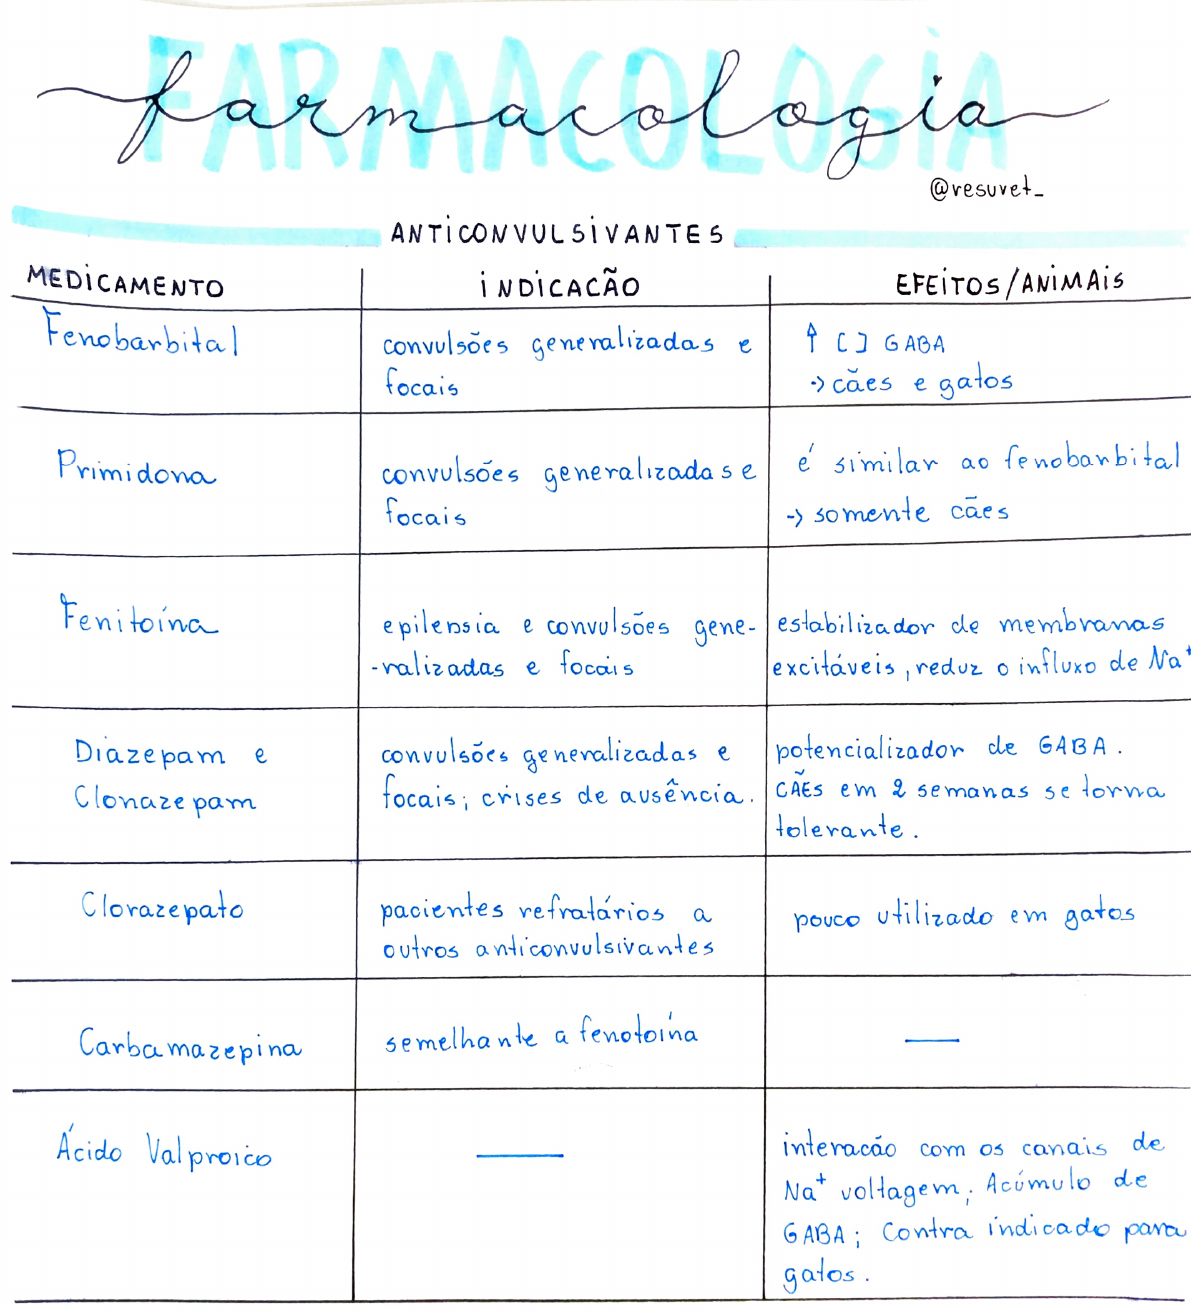 FARMACOLOGIA
farmacologia
@resuvet_
ANTICONVULSIVANTES
MEDICAMENTO
INDICACÃO
EFEITOS/ANIMAIS
Fenobarbital
convulsões generalizadas e
focais
↑ [ ] GABA
-> cães e gatos
Primidona
convulsões generalizadas e
focais
é similar ao fenobarbital
-> somente cães
Fenitoína
epilepsia e convulsões gene-
-ralizadas e focais
estabilizador de membranas
excitáveis, reduz o influxo de Na⁺
Diazepam e
Clonazepam
convulsões generalizadas e
focais; crises de ausência.
potencializador de GABA.
CÃES em 2 semanas se torna
tolerante.
Clorazepato
pacientes refratários a
outros anticonvulsivantes
pouco utilizado em gatos
Carbamazepina
semelhante a fenotoína
—
Ácido Valproico
—
interacão com os canais de
Na⁺ voltagem; Acúmulo de
GABA; Contra indicado para
gatos.